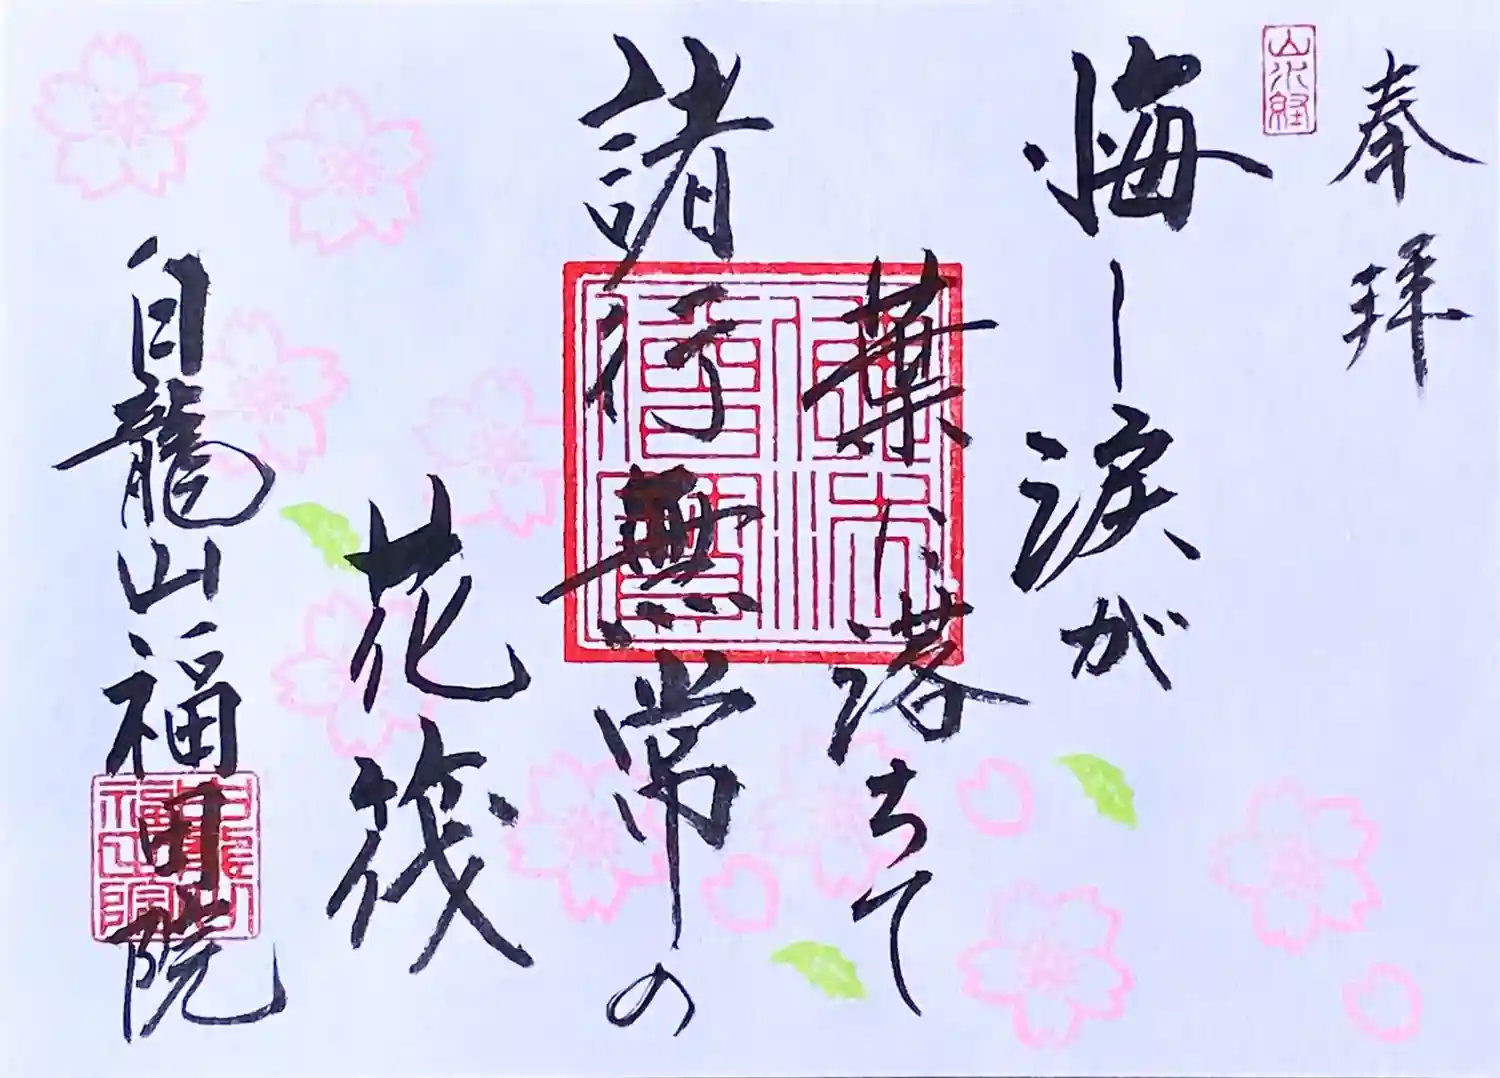 奉拝
山水経
悔し涙が
葉 落ちて
諸行無常の
花筏
佛法僧寶
白龍山福田院